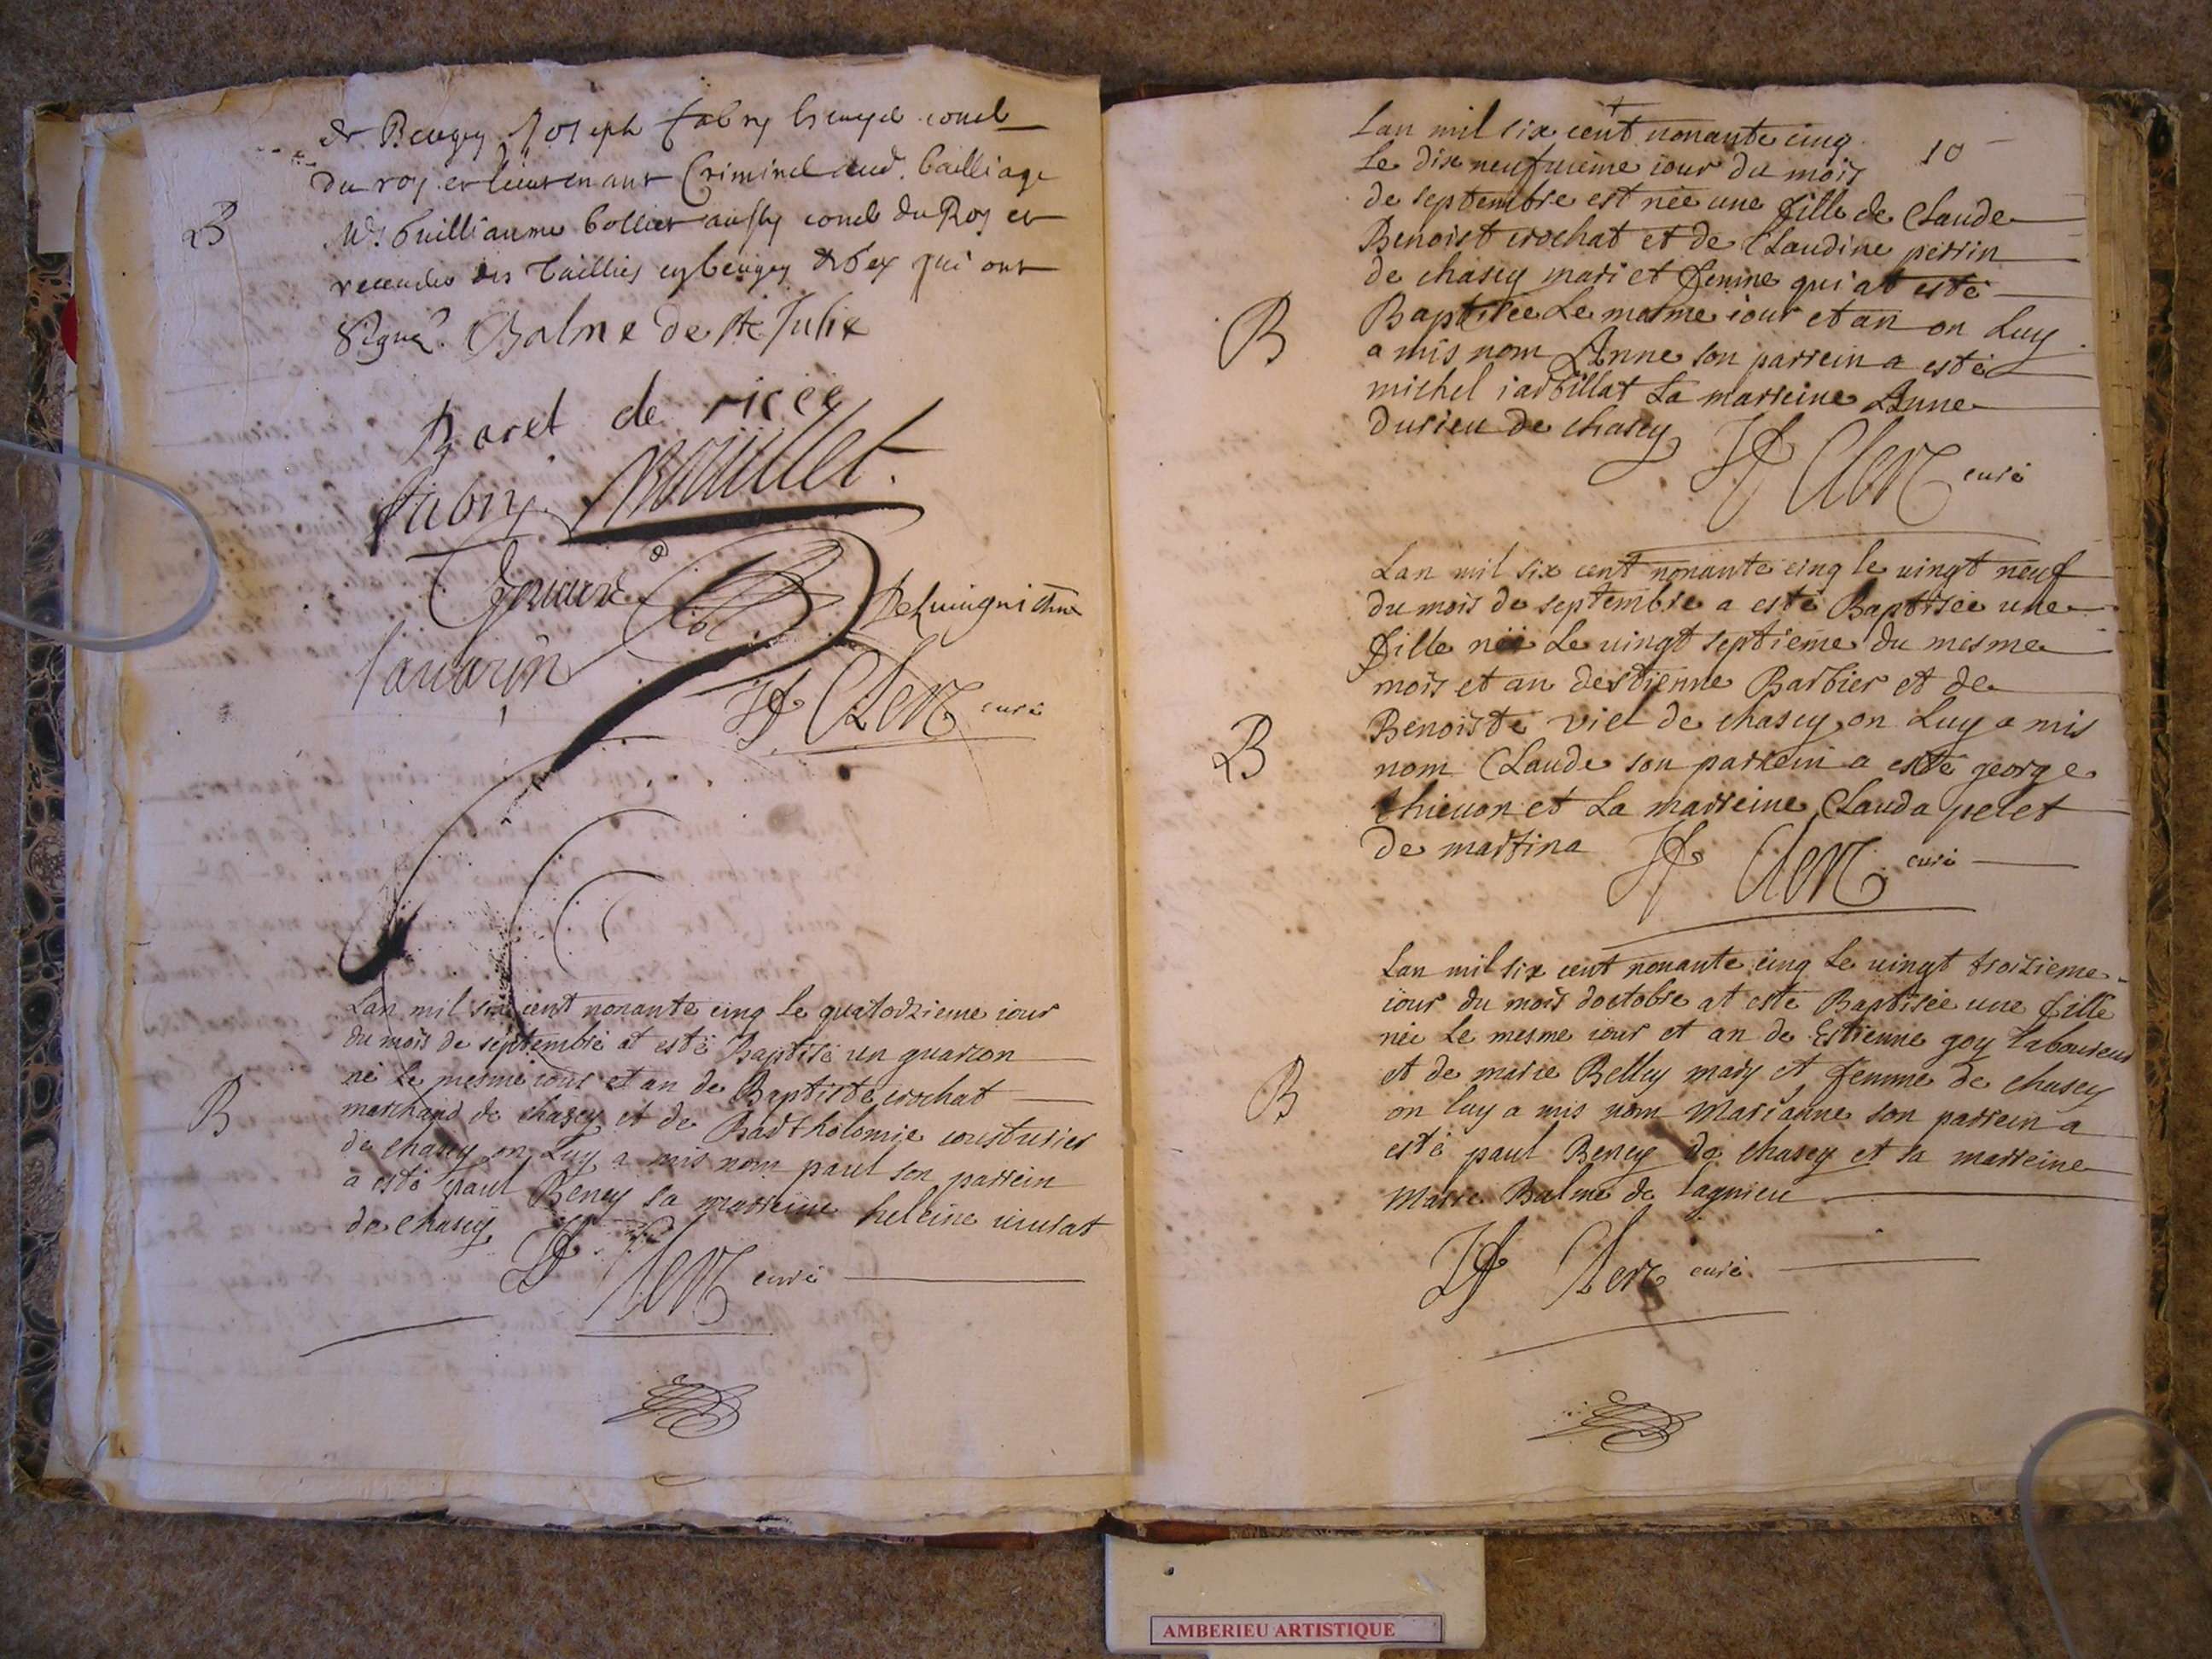 de Beugey Joseph fabry Escuyer consl
du roy et lieutenant Criminel aud. bailliage
Mr Guilliaume Collier aussy consl du Roy et
receveur des Tailles en beugey & Gex qui ont
B
Signé. Balme de Ste Julie
Baret de ricée
fabry Mouillet.
Jauarin
Clerc curé
Lan mil six cent nonante cinq Le quatorzieme iour
du mois de septembre at esté Baptisé un guarcon
né Le mesme iour et an de Baptiste crochat
marchand de chasey et de Bartholomie cousturier
B
de chasey on Luy a mis nom paul son parrein
a esté paul Beney sa marreine heleine
de chasey
Clerc curé
10
Lan mil six cent nonante cinq
Le dix neufuieme iour du mois
de septembre est née une fille de Claude
Benoist crochat et de Claudine perrin
de chasey mari et femme qui at esté
B
Baptisée Le mesme iour et an on Luy
a mis nom Anne son parrein a esté
michel iarbillat La marreine Anne
durieu de chasey
Clerc curé
Lan mil six cent nonante cinq le uingt neuf
du mois de septembre a esté Baptisée une
fille née Le uingt septieme du mesme
mois et an destienne Barbier et de
Benoiste viel de chasey on Luy a mis
B
nom Claude son parrein a esté george
thieuon et La marreine Clauda pelet
de martina
Clerc curé
Lan mil six cent nonante cinq Le uingt troizieme
iour du mois doctobre at esté Baptisée une fille
née Le mesme iour et an de Estienne goy laboureur
et de marie Belley mary et femme de chasey
B
on luy a mis nom marianne son parrein a
esté paul Beney de chasey et sa marreine
Marie Balme de lagnieu
Clerc curé
AMBERIEU ARTISTIQUE